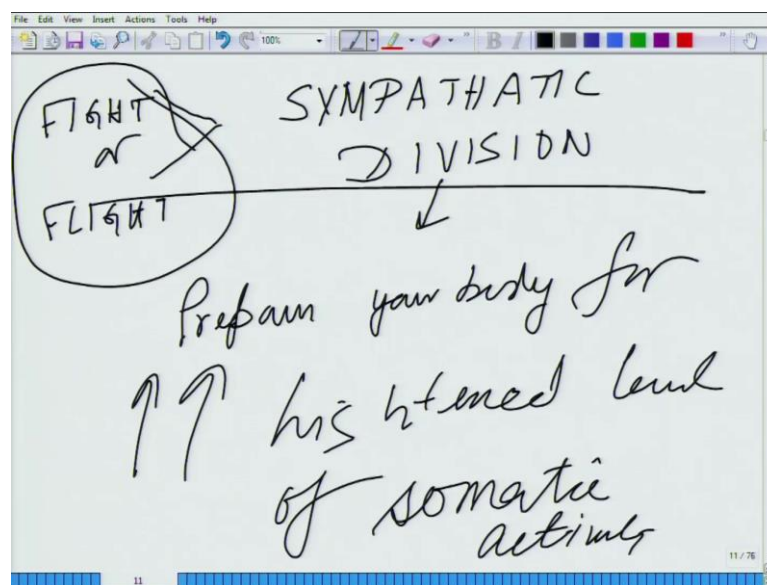 File Edit View Insert Actions Tools Help
100%
B I
FIGHT
or
FLIGHT
SYMPATHATIC
DIVISION
Prepare your body for
hightened level
of somatic
activity
11 / 76
11